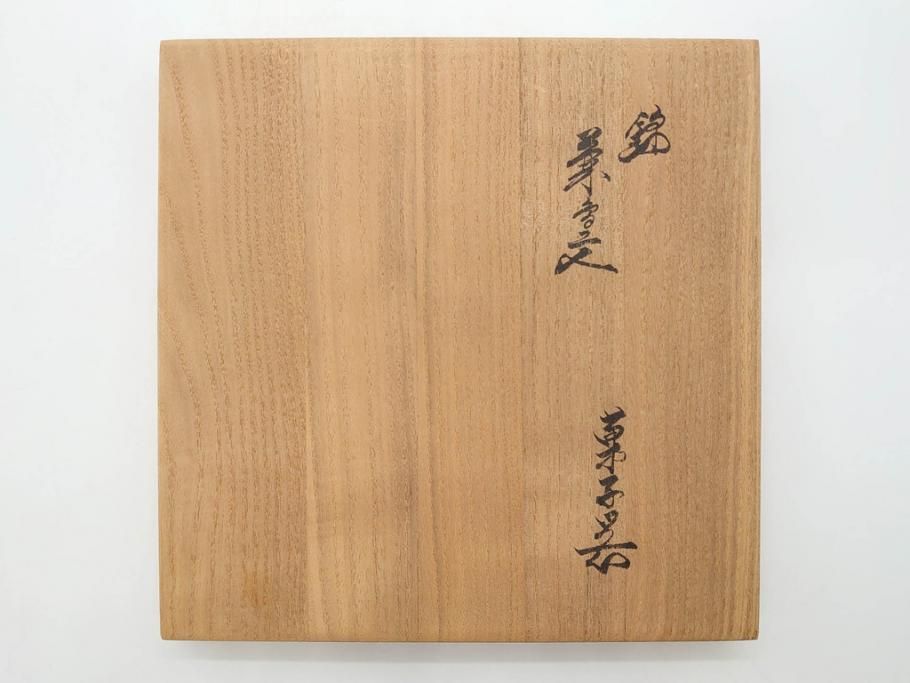 錦
葉雪文
菓子器